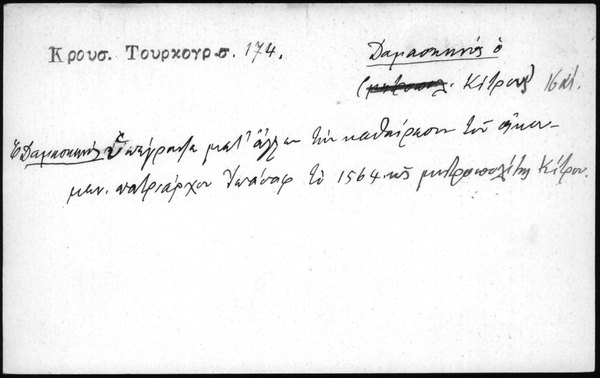 Κρουσ. Τουρκογρ σ. 174.
Δαμασκηνός ὁ
(μητροπολ. Κίτρους) 16 αἰ.
Ὁ Δαμασκηνός ὑπέγραψε μετ' ἄλλων τὴν καθαίρεσιν τοῦ οἰκου-
μεν. πατριάρχου Ἰωάσαφ τῷ 1564 ὡς μητροπολίτης Κίτρου.